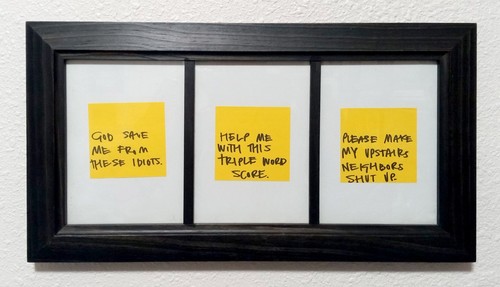 GOD SAVE
ME FROM
THESE IDIOTS.
HELP ME
WITH THIS
TRIPLE WORD
SCORE.
PLEASE MAKE
MY UPSTAIRS
NEIGHBORS
SHUT UP.